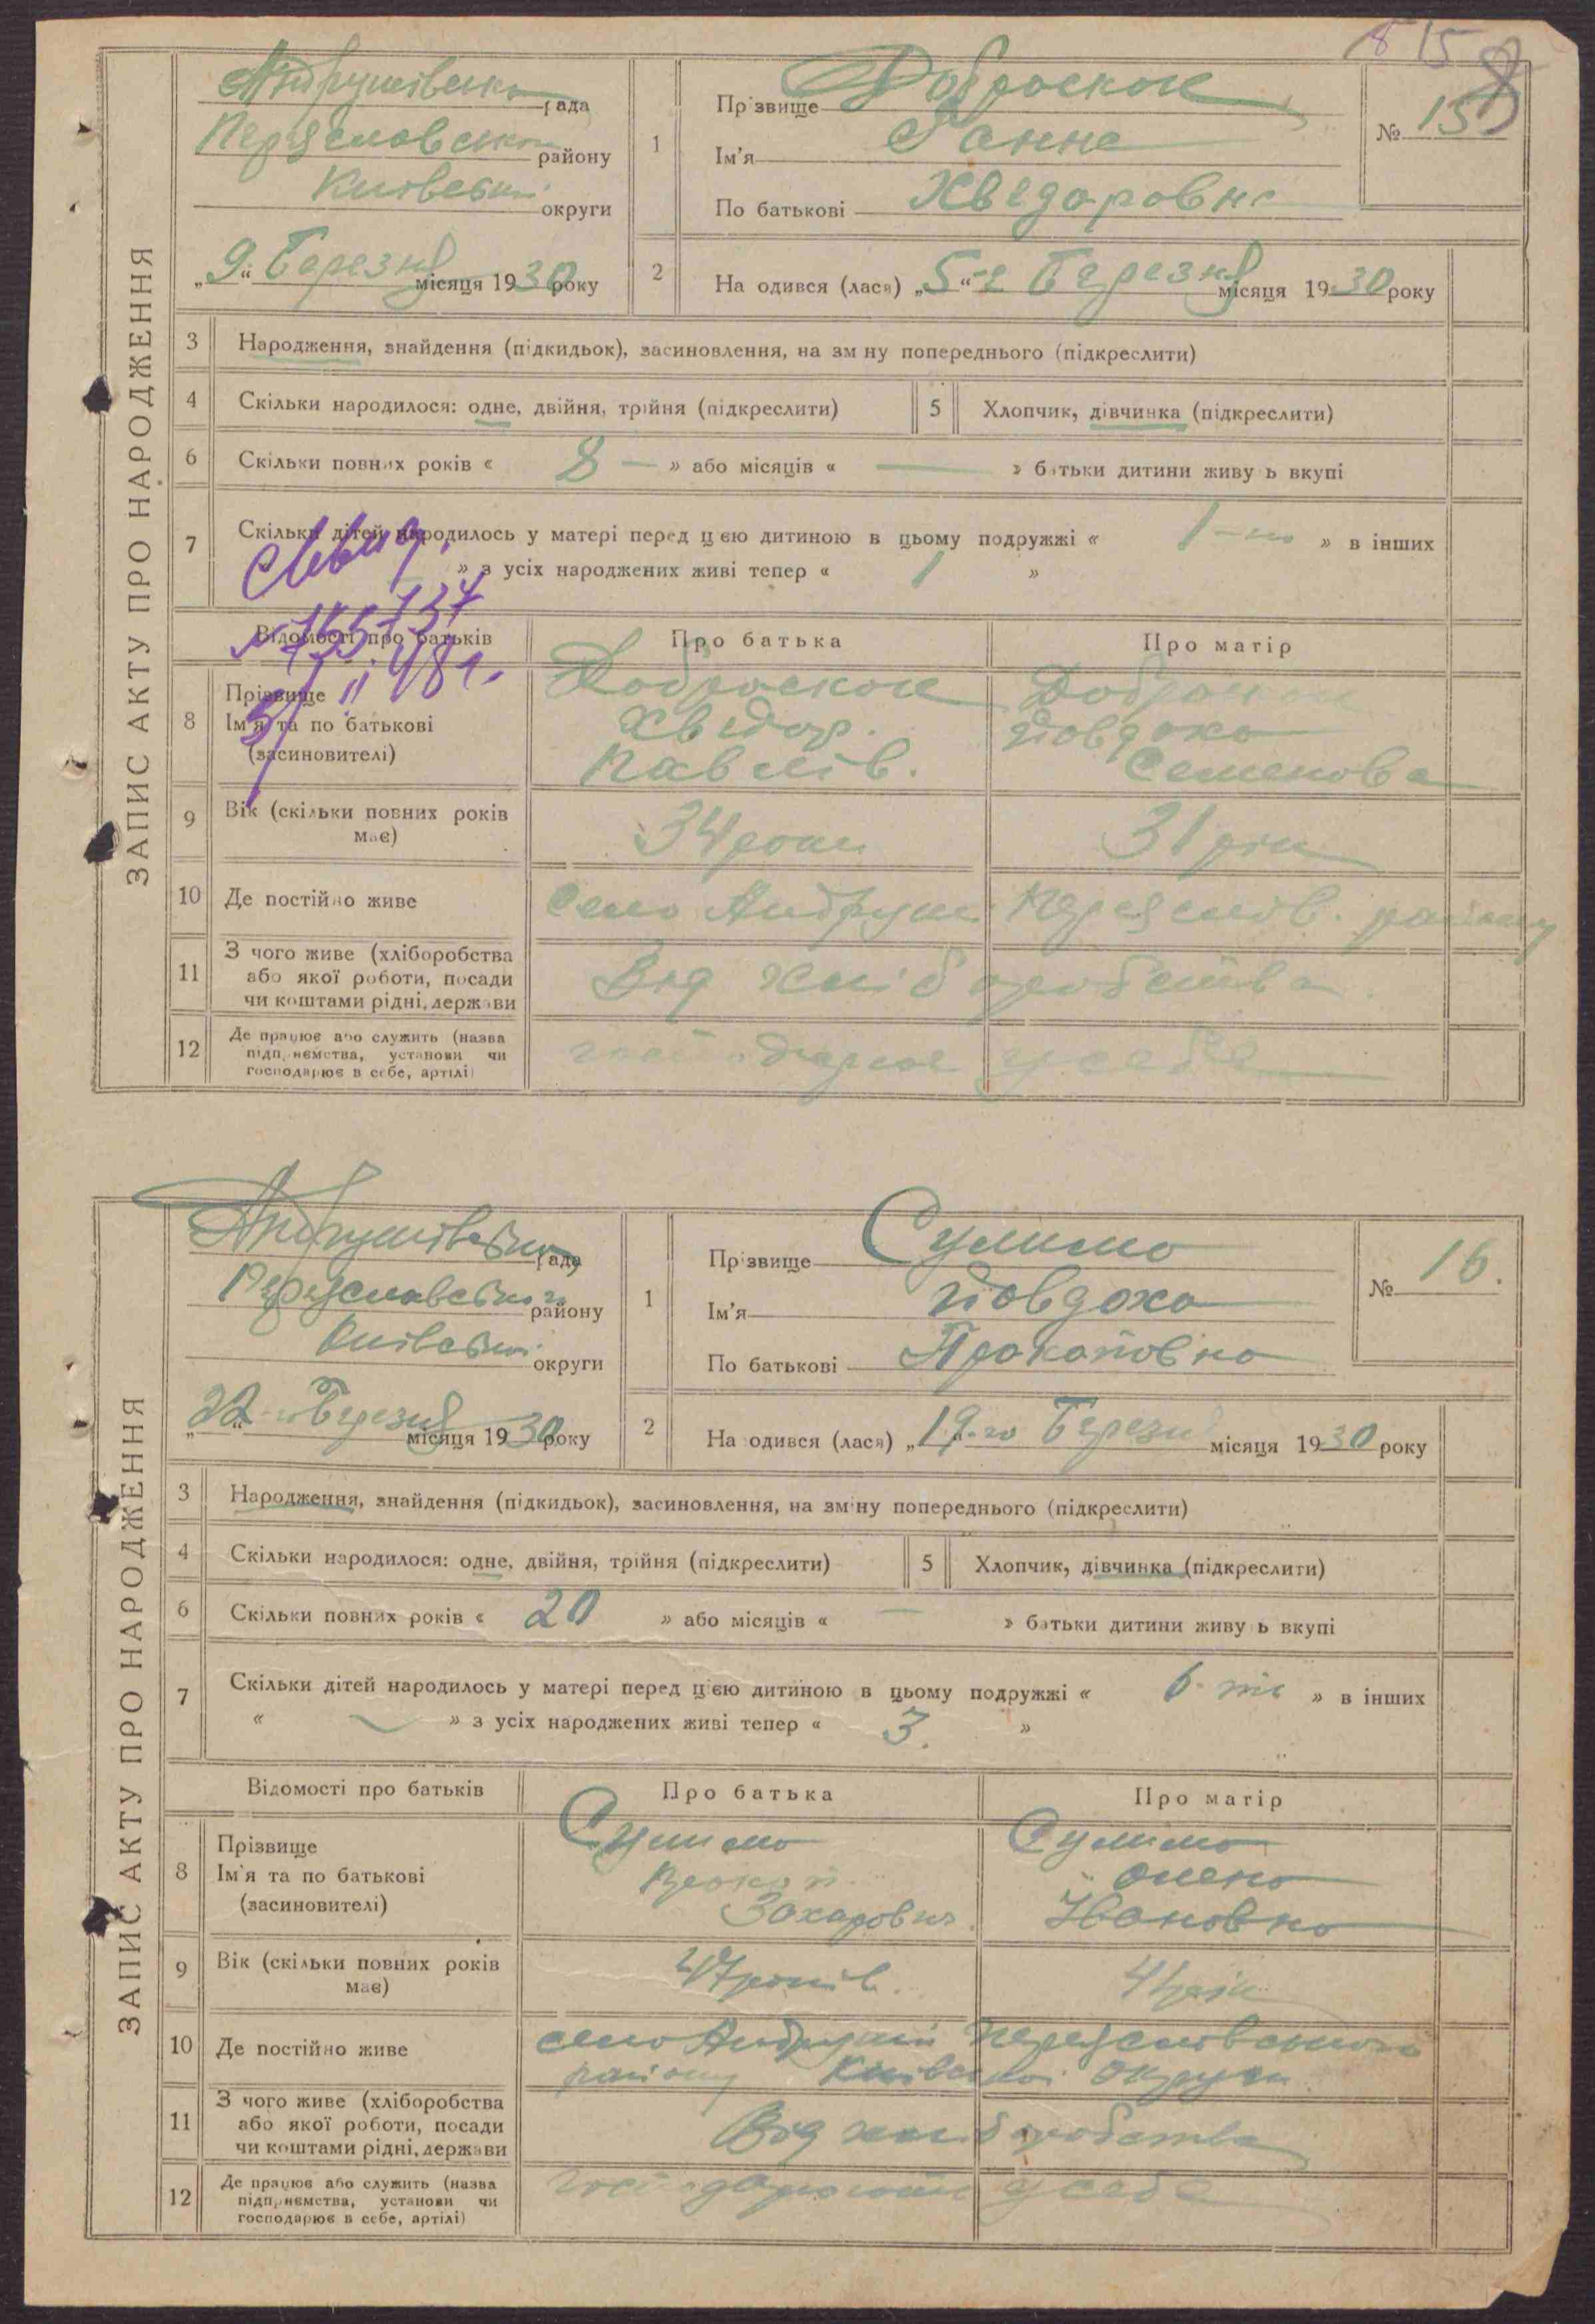 15
ЗАПИС АКТУ ПРО НАРОДЖЕННЯ
Андрушівська рада
Переяславського району
Київської округи
„9“ Березня місяця 1930 року
1
Прізвище Доброскок
Ім'я Ганна
По батькові Хведоровна
№ 15
2
На одився (лася) „5“-г Березня місяця 1930 року
3 Народження, знайдення (підкидьок), засиновлення, на зміну попереднього (підкреслити)
4 Скільки народилося: одне, двійня, трійня (підкреслити)
5 Хлопчик, дівчинка (підкреслити)
6 Скільки повних років « 8 — » або місяців « — » батьки дитини живуть вкупі
7 Скільки дітей народилось у матері перед цією дитиною в цьому подружжі « 1-но » в інших
» з усіх народжених живі тепер « 1 »
Відомості про батьків
Про батька
Про матір
8 Прізвище
Ім'я та по батькові
(засиновителі)
Доброскок
Хведор.
Павлів.
Доброскок
Явдоха
Семенова
9 Вік (скільки повних років має)
34 роки
31 рік
10 Де постійно живе
Село Андруші Переяслов. району
11 З чого живе (хліборобства
або якої роботи, посади
чи коштами рідні, держави
Від хліборобства
12 Де працює або служить (назва
підприємства, установи чи
господарює в себе, артілі)
господарює у себе
ЗАПИС АКТУ ПРО НАРОДЖЕННЯ
Андрушівська рада
Переяславського району
Київської округи
„22“-го Березня місяця 1930 року
1
Прізвище Сулимо
Ім'я Явдоха
По батькові Прокоповна
№ 16.
2
На одився (лася) „19-го Березня місяця 1930 року
3 Народження, знайдення (підкидьок), засиновлення, на зміну попереднього (підкреслити)
4 Скільки народилося: одне, двійня, трійня (підкреслити)
5 Хлопчик, дівчинка (підкреслити)
6 Скільки повних років « 20 » або місяців « — » батьки дитини живуть вкупі
7 Скільки дітей народилось у матері перед цією дитиною в цьому подружжі « 6-ть » в інших
« — » з усіх народжених живі тепер « 3. »
Відомості про батьків
Про батька
Про матір
8 Прізвище
Ім'я та по батькові
(засиновителі)
Сулимо
Прокоп
Захарович.
Сулимо
Олено
Ивановно
9 Вік (скільки повних років має)
47 років.
41 рік
10 Де постійно живе
село Андруши Переяславського
району Київської Округи
11 З чого живе (хліборобства
або якої роботи, посади
чи коштами рідні, держави
Від хліборобства
12 Де працює або служить (назва
підприємства, установи чи
господарює в себе, артілі)
у себе